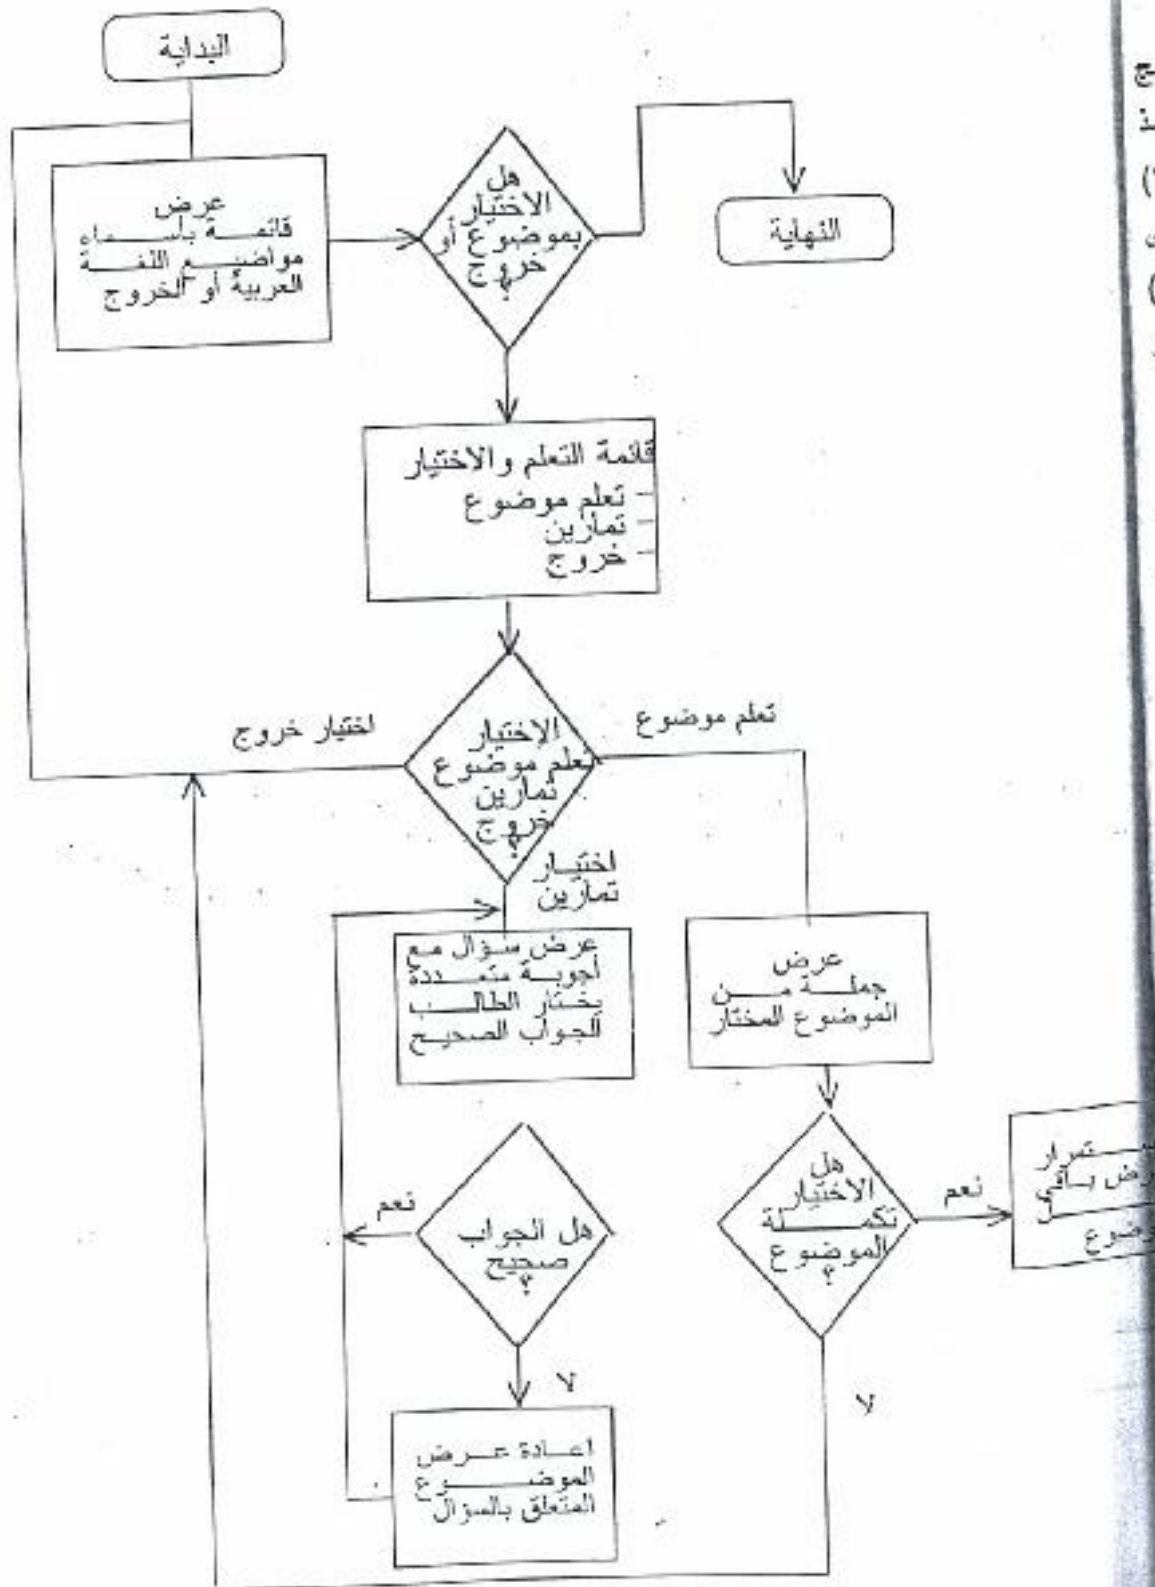 البداية
عرض
قائمة بأسماء
مواضيع اللغة
العربية أو الخروج
هل
الاختيار
بموضوع أو
خروج
؟
النهاية
قائمة التعلم والاختيار
- تعلم موضوع
- تمارين
- خروج
الاختيار
تعلم موضوع
تمارين
خروج
؟
اختيار خروج
تعلم موضوع
اختيار
تمارين
عرض سؤال مع
أجوبة متعددة
يختار الطالب
الجواب الصحيح
عرض
جملة من
الموضوع المختار
هل الجواب
صحيح
؟
نعم
لا
هل
الاختيار
تكملة
الموضوع
؟
نعم
لا
باقي
اعادة عرض
الموضوع
المتعلق بالسؤال